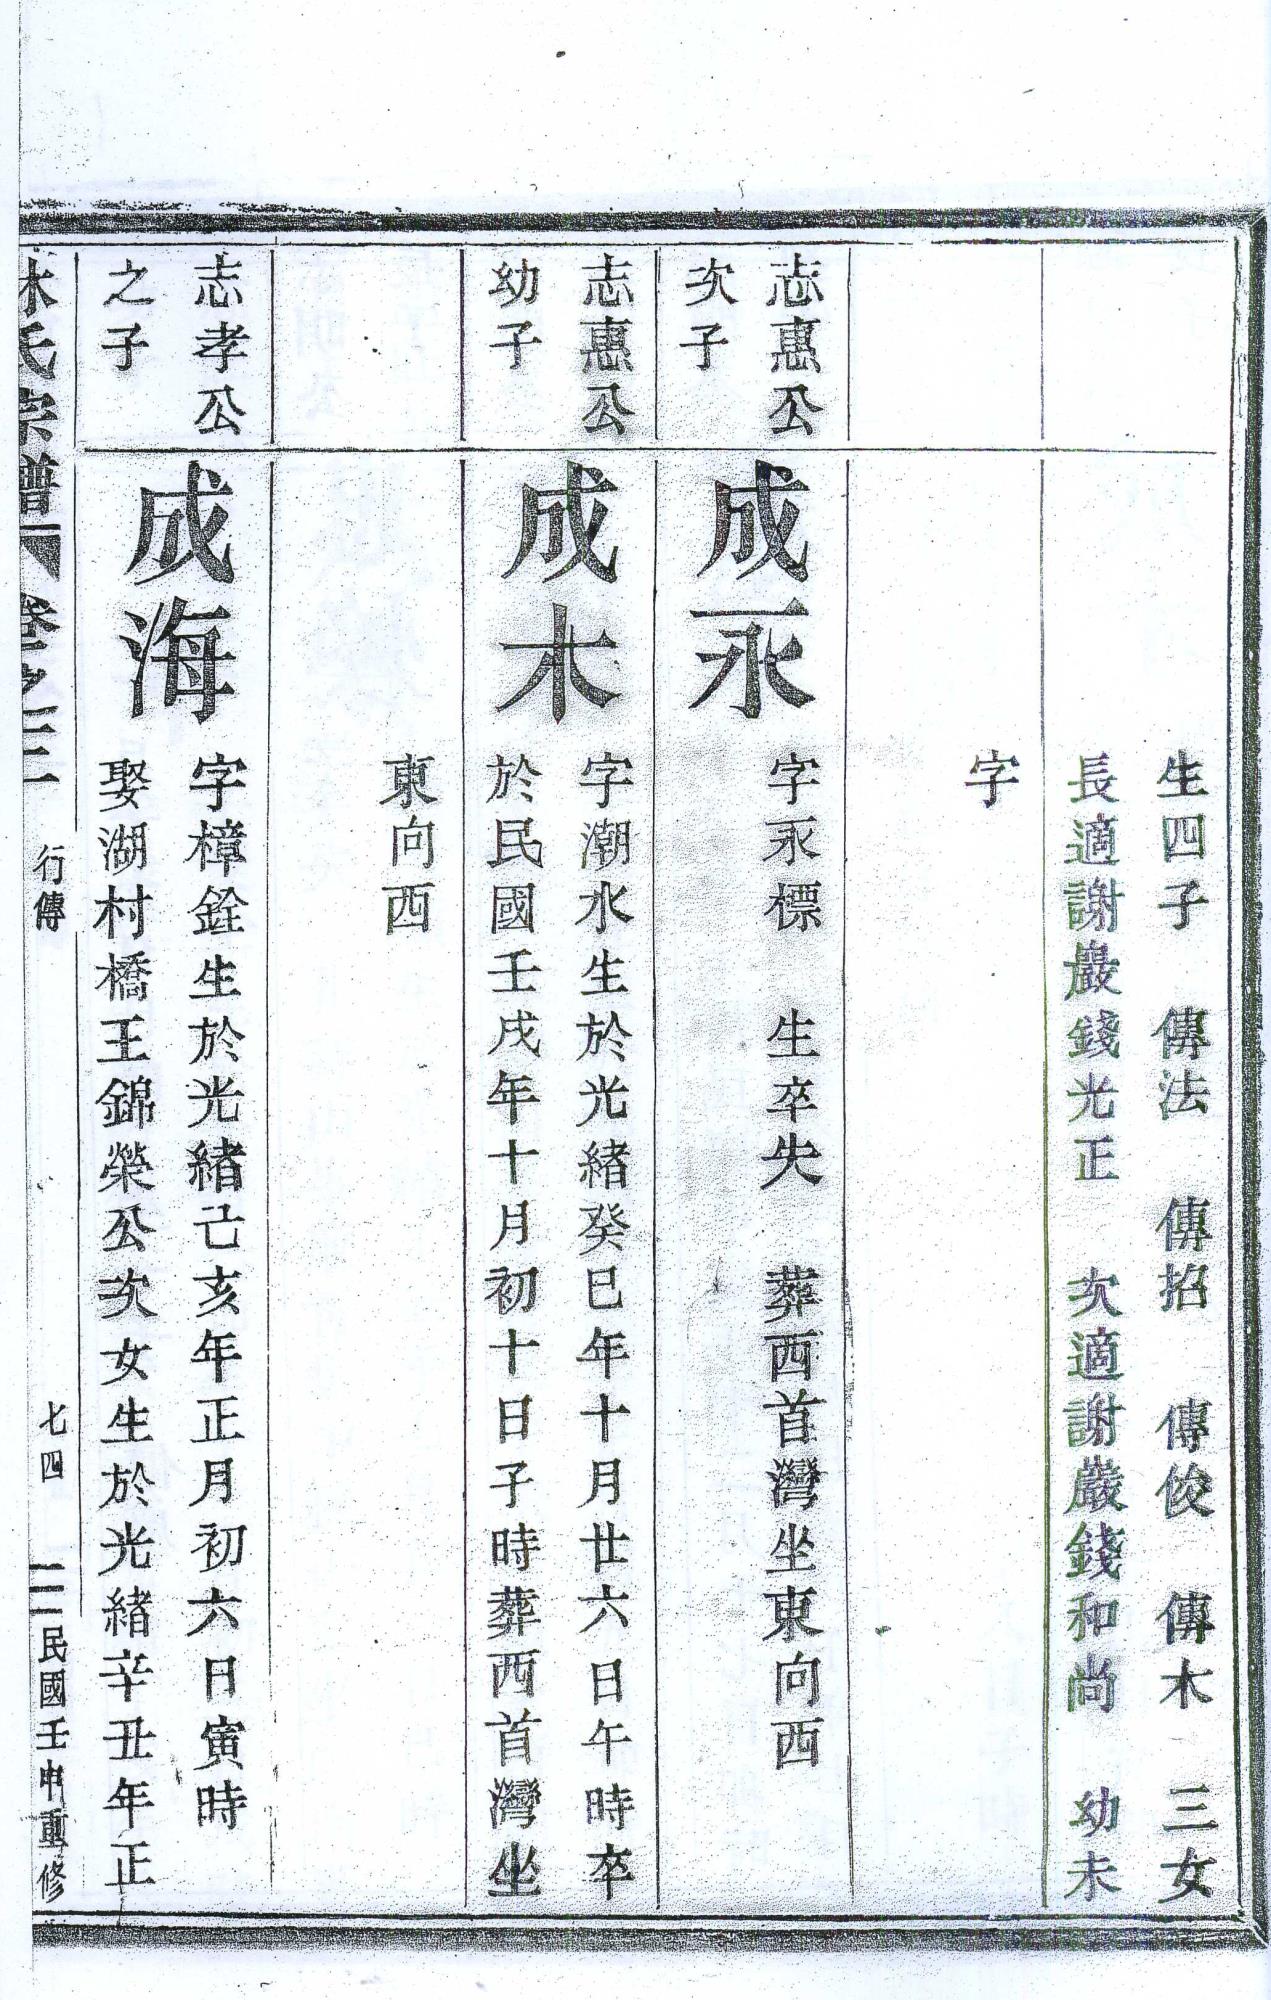 生四子　傳法　傳招　傳俊　傳木　三女
長適謝巖錢光正　次適謝巖錢和尚　幼未
字
志惠公
次子
成永
字永標　生卒失　葬西首灣坐東向西
志惠公
幼子
成木
字潮水生於光緒癸巳年十月廿六日午時卒
於民國壬戌年十月初十日子時葬西首灣坐
東向西
志孝公
之子
成海
字樟銓生於光緒己亥年正月初六日寅時
娶湖村橋王錦榮公次女生於光緒辛丑年正
林氏宗譜　卷之三　行傳　七四　民國壬申重修